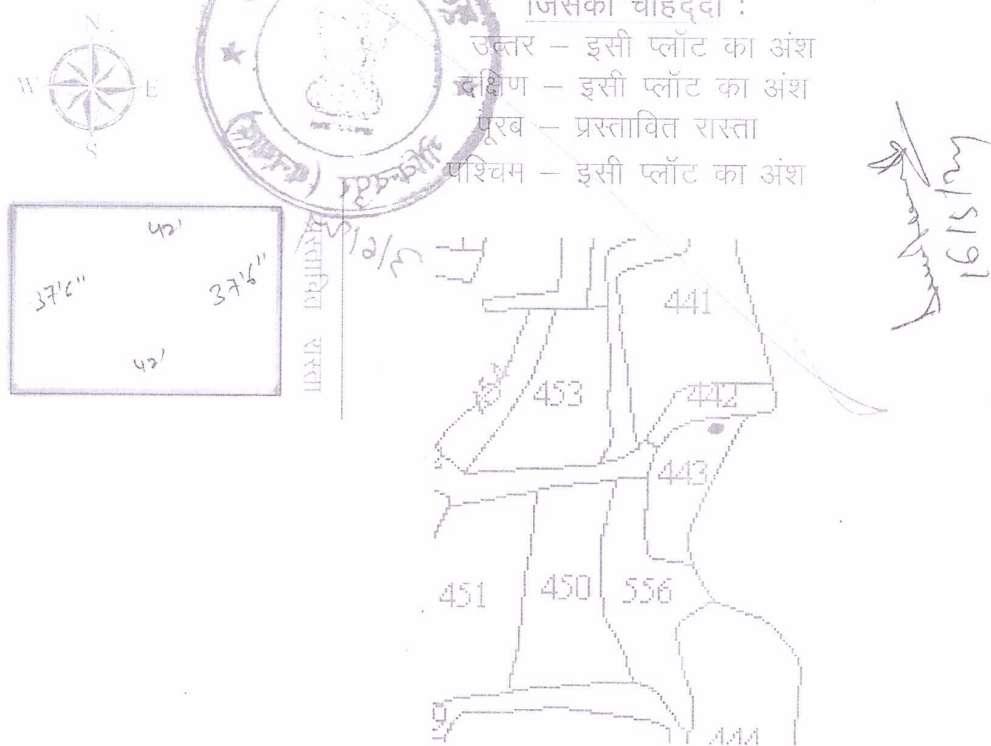 जिसकी चौहद्दी :
उत्तर – इसी प्लॉट का अंश
दक्षिण – इसी प्लॉट का अंश
पूरब – प्रस्तावित रास्ता
पश्चिम – इसी प्लॉट का अंश
N
W E
S
42'
37'6" 37'6"
42'
प्रस्तावित रास्ता
441
453
442
443
451
450
556
444